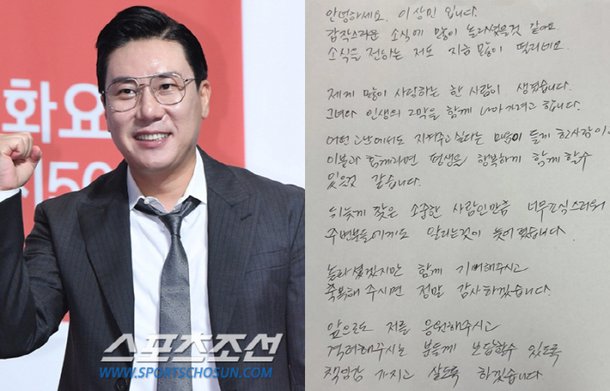 화요
시50
스포츠조선
WWW.SPORTSCHOSUN.COM
안녕하세요. 이상민 입니다.
갑작스러운 소식에 많이 놀라셨을것 같아요
소식을 전하는 저도 지금 많이 떨리네요.
제게 많이 사랑하는 한 사람이 생겼습니다.
그녀와 인생의 2막을 함께 나아가려고 합니다.
어떤 고난에서도 지켜주고 싶다는 마음이 들게 한 사람이
이분과 함께라면 평생을 행복하게 함께 할수
있을것 같습니다.
뒤늦게 찾은 소중한 사람인만큼 너무 조심스러워
주변분들에게도 알리는것이 늦어졌습니다.
놀라셨겠지만 함께 기뻐해주시고
축복해 주시면 정말 감사하겠습니다.
앞으로도 저를 응원해주시고
격려해주시는 분들께 보답할수 있도록
책임감 가지고 살도록 하겠습니다